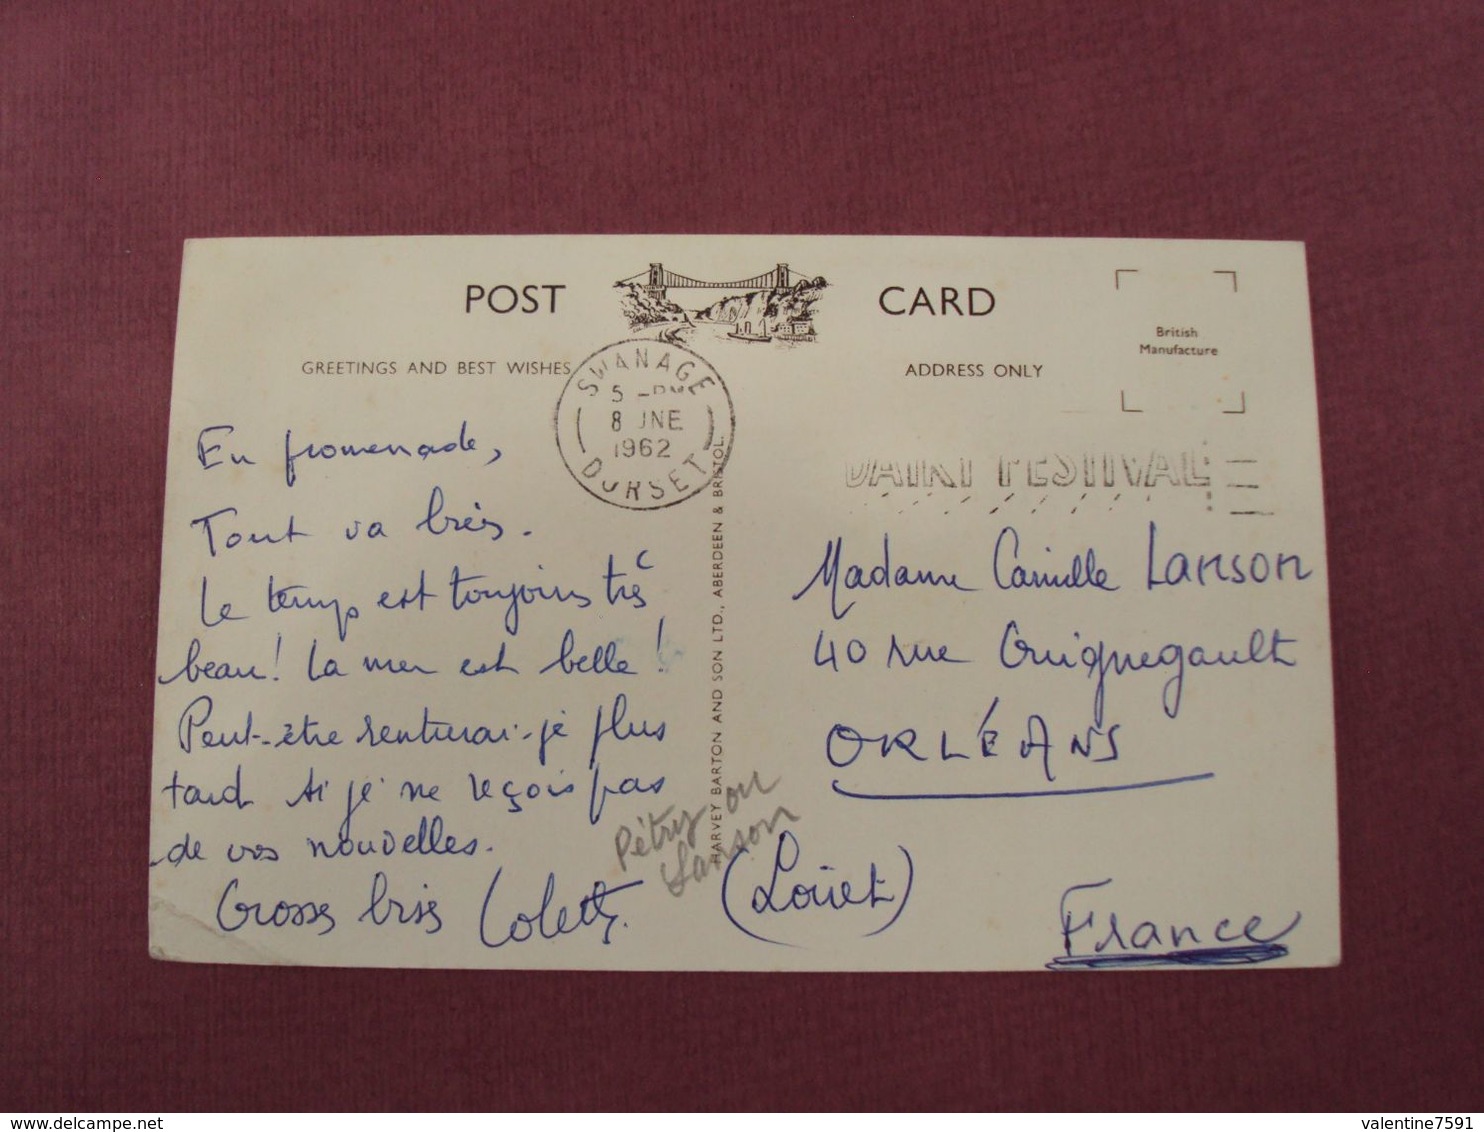 POST CARD
GREETINGS AND BEST WISHES
ADDRESS ONLY
British
Manufacture
SWANAGE
5 -PM
8 JNE
1962
DORSET
DAIRY FESTIVAL
HARVEY BARTON AND SON LTD., ABERDEEN & BRISTOL.
En promenade,
Tout va bien.
Le temps est toujours très
beau! La mer est belle!
Peut-être rentrerai-je plus
tard si je ne reçois pas
de vos nouvelles.
Grosses bises Colette.
Pétry ou
Lanson
Madame Camille Lanson
40 rue Guignegault
ORLÉANS
(Loiret)
France
valentine7591